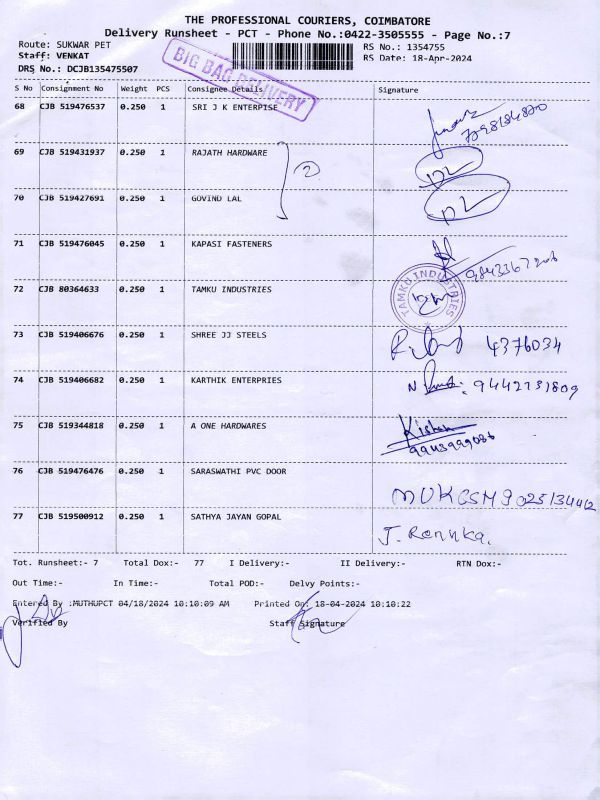 THE PROFESSIONAL COURIERS, COIMBATORE
Delivery Runsheet - PCT - Phone No.:0422-3505555 - Page No.:7
Route: SUKWAR PET RS No.: 1354755
Staff: VENKAT RS Date: 18-Apr-2024
DRS No.: DCJB135475507
BIG BAG DELIVERY
S No Consignment No Weight PCS Consignee Details Signature
68 CJB 519476537 0.250 1 SRI J K ENTERPISE
69 CJB 519431937 0.250 1 RAJATH HARDWARE
2
70 CJB 519427691 0.250 1 GOVIND LAL
71 CJB 519476045 0.250 1 KAPASI FASTENERS
72 CJB 80364633 0.250 1 TAMKU INDUSTRIES TAMKU INDUSTRIES
73 CJB 519406676 0.250 1 SHREE JJ STEELS 4376034
74 CJB 519406682 0.250 1 KARTHIK ENTERPRIES
75 CJB 519344818 0.250 1 A ONE HARDWARES
9943999086
76 CJB 519476476 0.250 1 SARASWATHI PVC DOOR
77 CJB 519500912 0.250 1 SATHYA JAYAN GOPAL J. Renuka.
Tot. Runsheet:- 7 Total Dox:- 77 I Delivery:- II Delivery:- RTN Dox:-
Out Time:- In Time:- Total POD:- Delvy Points:-
Entered By :MUTHUPCT 04/18/2024 10:10:09 AM Printed On: 18-04-2024 10:10:22
Verified By Staff Signature